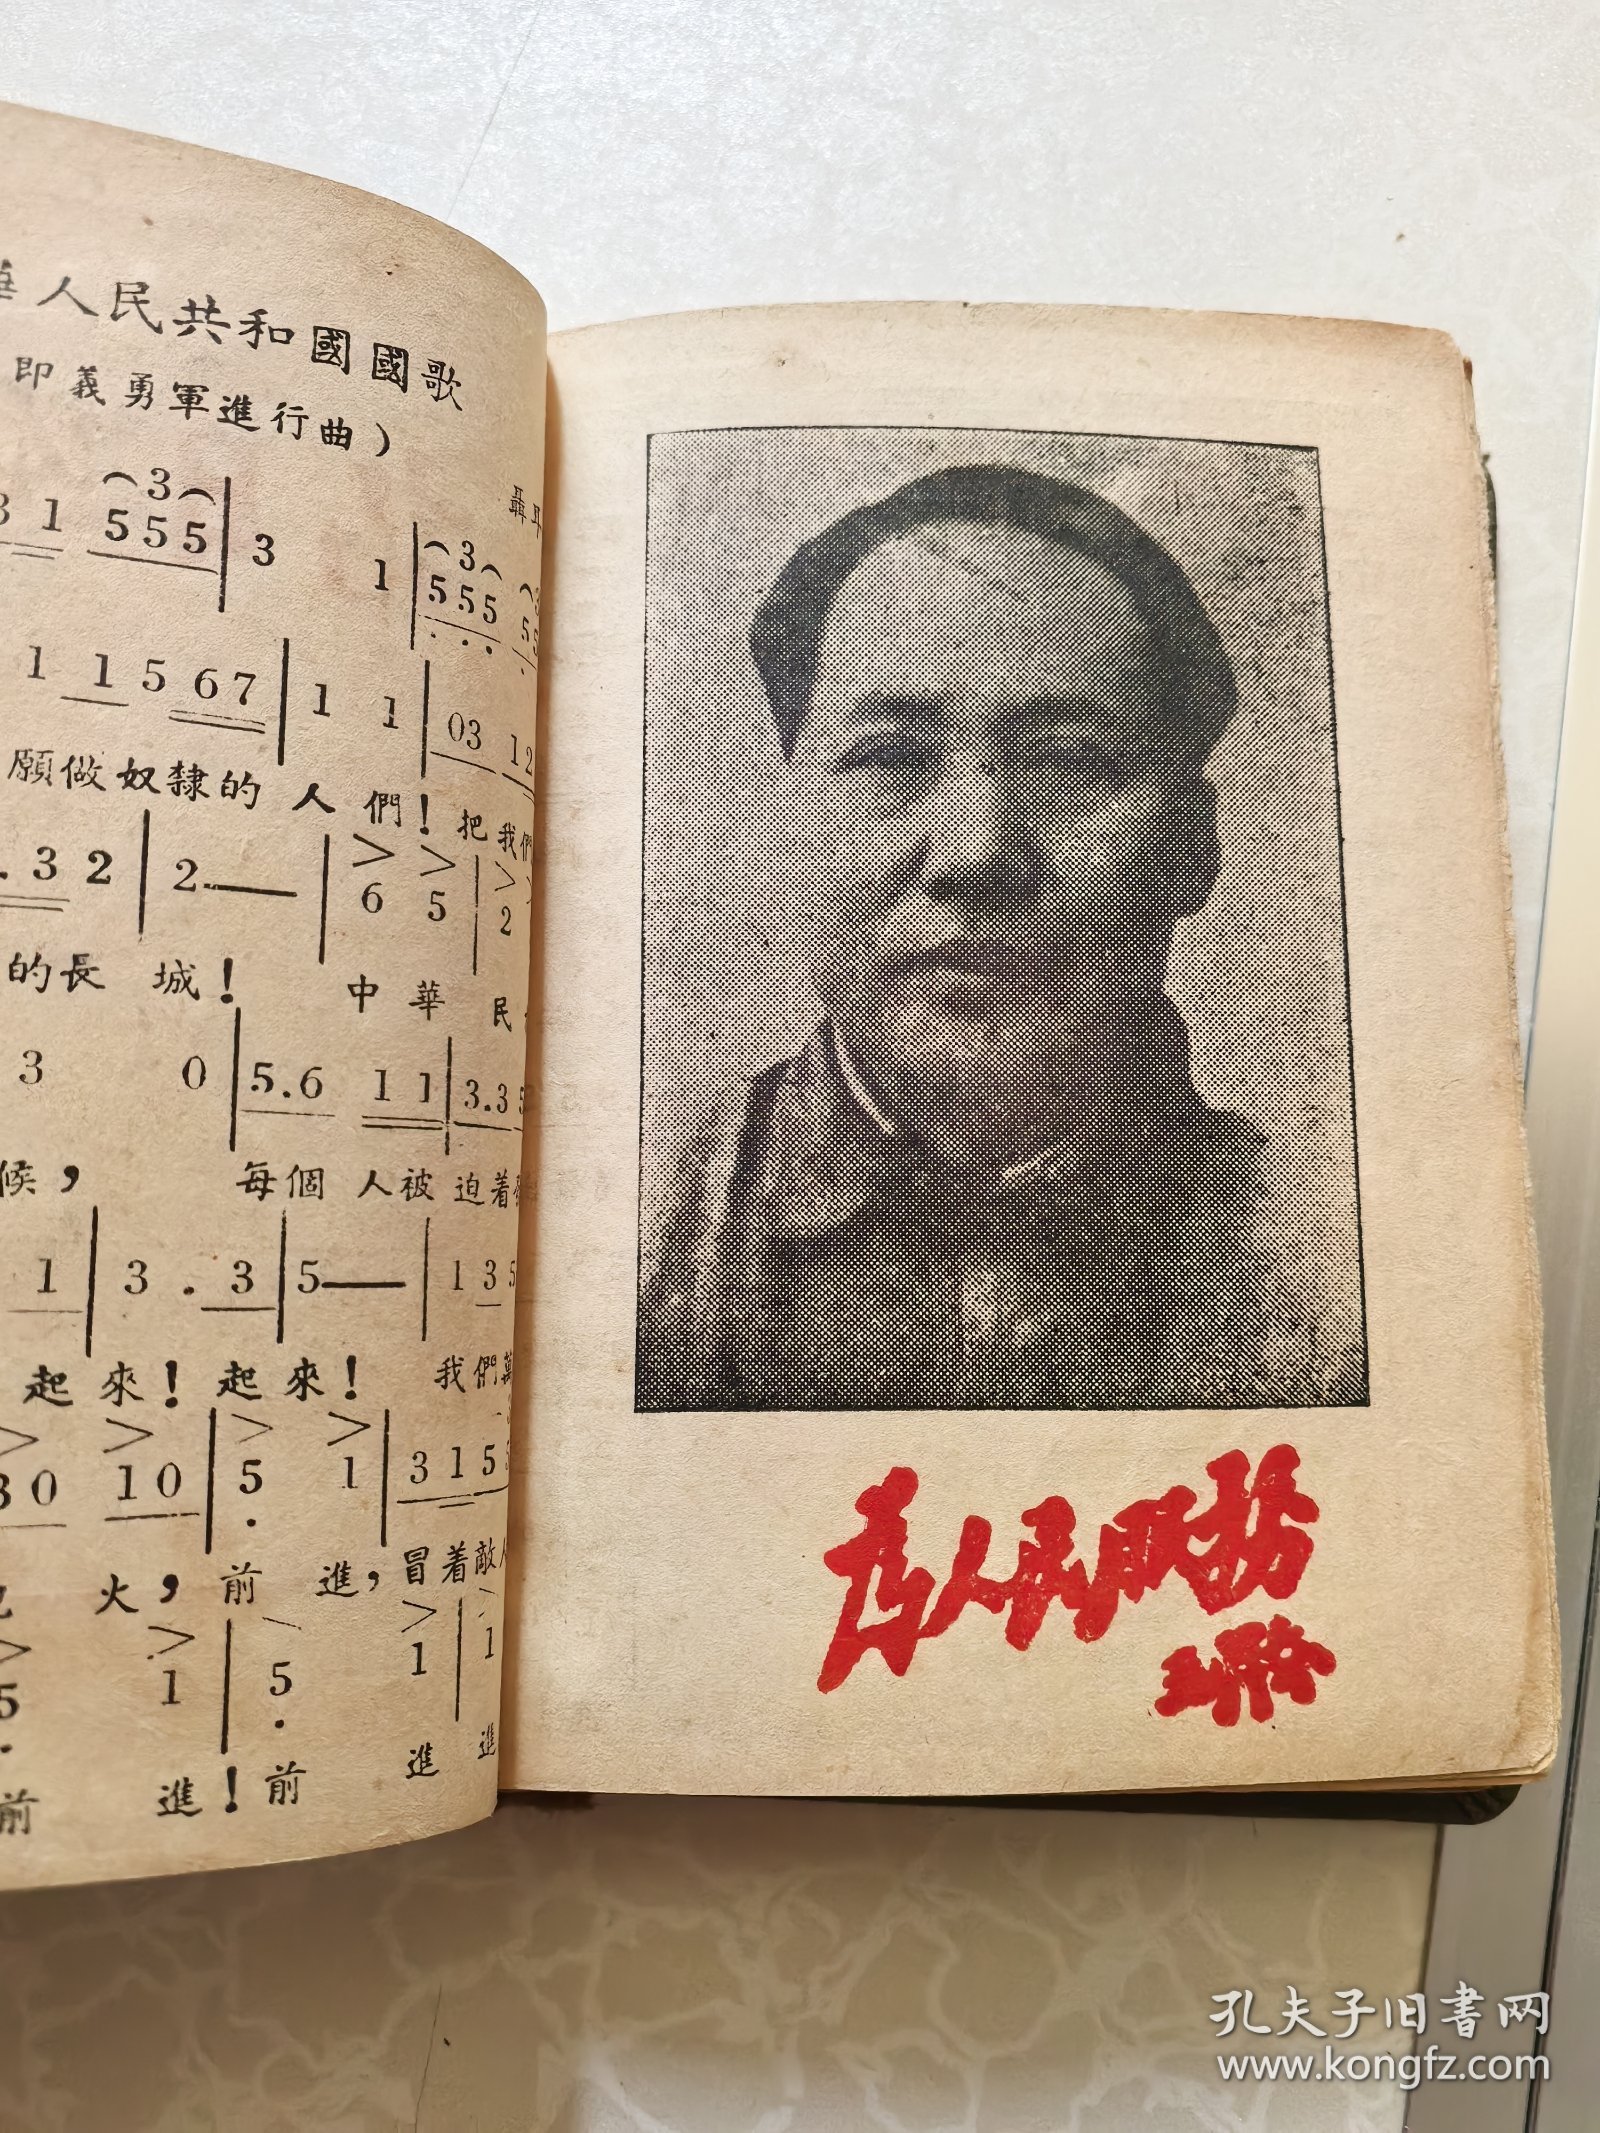 人民共和國國歌
即義勇軍進行曲）
聶耳
3 1 5 5 5 | 3 1 | 5 5 5
1 1 5 6 7 | 1 1 | 03 12
願做奴隸的人們！把我們
. 3 2 | 2. — | 6 5 | 2
的長城！ 中華民
3 0 | 5.6 1 1 | 3.3 5
候， 每個人被迫着
1 | 3 . 3 | 5 — | 1 3 5
起來！起來！ 我們萬
3 0 1 0 | 5 1 | 3 1 5
火，前進，冒着敵人
5 1 | 5 1 | 1
前進！前進進
为人民服務
毛澤东
孔夫子旧書网
www.kongfz.com